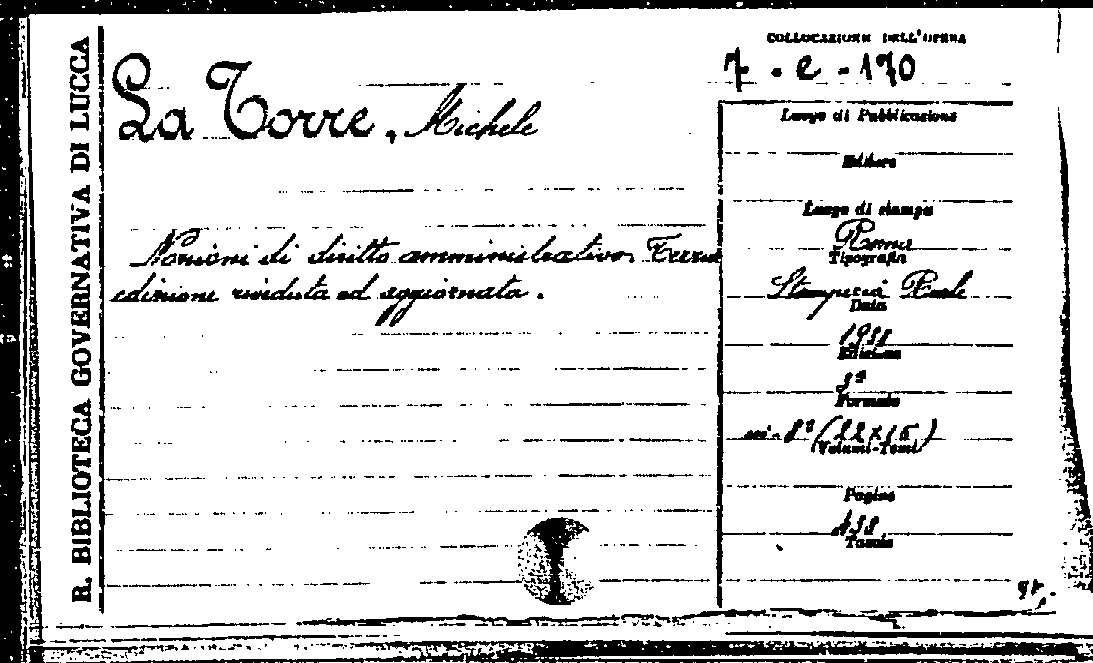 R. BIBLIOTECA GOVERNATIVA DI LUCCA
COLLOCAZIONE DELL'OPERA
7 - e - 170
La Torre, Michele
Nozioni di diritto amministrativo. Terza
edizione riveduta ed aggiornata.
Luogo di Pubblicazione
Editore
Luogo di stampa
Roma
Tipografia
Stamperia Reale
Data
Edizione
3ª
Formato
in-8° (22×15)
Volumi-Tomi
Pagine
Tavole